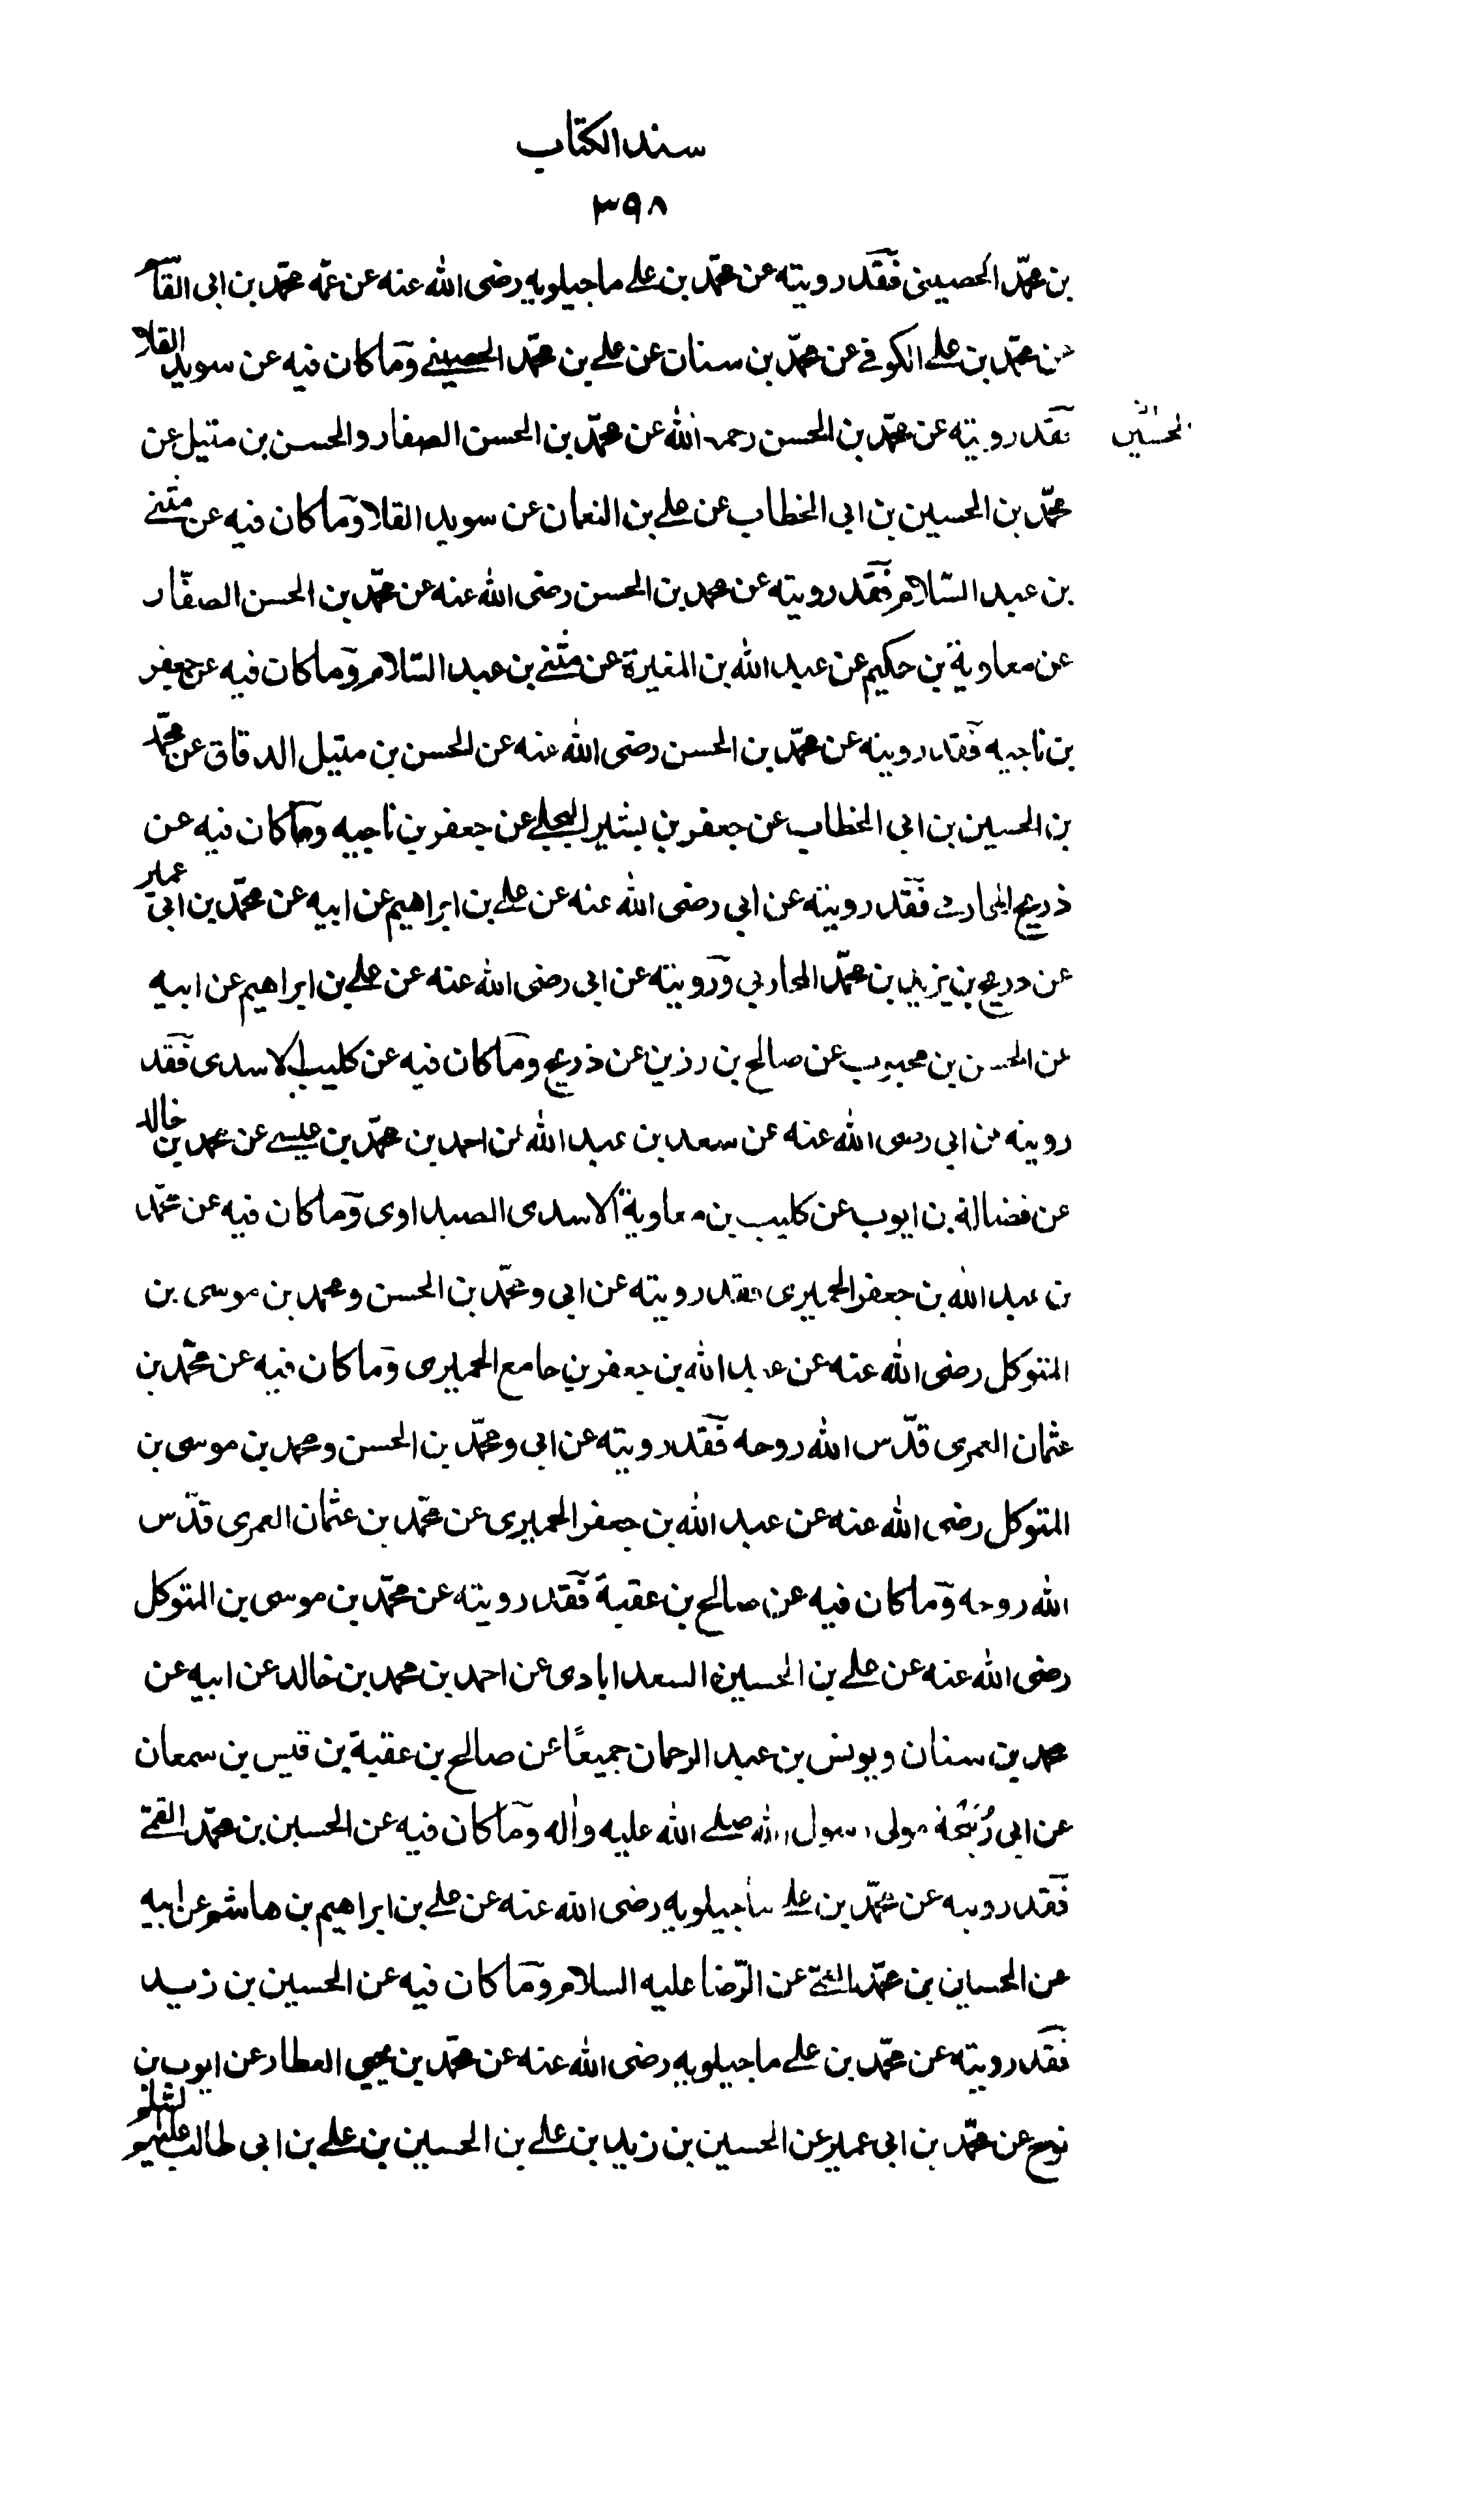 سند الكتاب
٣٩٨
بن محمّد الحصيني فقد رويته عن محمّد بن علي ماجيلويه رضى الله عنه عن عمّه محمّد بن ابى القاسم
عن محمّد بن علي الكوفي عن محمّد بن سنان عن علي بن محمّد الحصيني وما كان فيه عن سويد القلا
فقد رويته عن محمّد بن الحسن رحمه الله عن محمّد بن الحسن الصفار والحسن بن متيل عن
الحسين
محمّد بن الحسين بن ابى الخطاب عن علي بن النعمان عن سويد القلا وما كان فيه عن مثنى
بن عبد السّلام فقد رويته عن محمد بن الحسن رضى الله عنه عن محمّد بن الحسن الصفّار
عن معاوية بن حكيم عن عبد الله بن المغيرة عن مثنى بن عبد السّلام وما كان فيه عن جعفر
بن ناجيه فقد رويته عن محمّد بن الحسن رضى الله عنه عن الحسن بن متيل الدقاق عن محمّد
بن الحسين بن ابى الخطاب عن جعفر بن بشير البجلي عن جعفر بن ناجيه وما كان فيه عن
ذريح المحاربى فقد رويته عن ابى رضى الله عنه عن علي بن ابراهيم عن ابيه عن محمّد بن ابى عمير
عن ذريح بن يزيد بن محمّد المحاربى ورويته عن ابى رضى الله عنه عن علي بن ابراهيم عن ابيه
عن الحسن بن محبوب عن صالح بن رزين عن ذريح وما كان فيه عن كليب الاسدى فقد
رويته عن ابى رضى الله عنه عن سعد بن عبد الله عن احمد بن محمّد بن عيسى عن محمد بن خالد
عن فضالة بن ايوب عن كليب بن معاوية الاسدى الصيداوى وما كان فيه عن محمّد
بن عبد الله بن جعفر الحميرى فقد رويته عن ابى ومحمّد بن الحسن ومحمد بن موسى بن
المتوكل رضى الله عنه عن عبد الله بن جعفر بن جامع الحميرى وما كان فيه عن محمّد بن
عثمان العمرى قدّس الله روحه فقد رويته عن ابى ومحمّد بن الحسن ومحمد بن موسى بن
المتوكل رضى الله عنه عن عبد الله بن جعفر الحميرى عن محمّد بن عثمان العمرى قدّس
الله روحه وما كان فيه عن صالح بن عقبة فقد رويته عن محمّد بن موسى بن المتوكل
رضى الله عنه عن علي بن الحسين السعدابادى عن احمد بن محمد بن خالد عن ابيه عن
محمد بن سنان ويونس بن عبد الرحمان جميعًا عن صالح بن عقبة بن قيس بن سمعان
عن ابى رُبَيْحَة مولى رسول الله صلى الله عليه واله وما كان فيه عن الحسين بن محمّد القمّي
فقد رويته عن محمّد بن علي ماجيلويه رضى الله عنه عن علي بن ابراهيم بن هاشم عن ابيه
عن الحسين بن محمّد القمّي عن الرّضا عليه السلام وما كان فيه عن الحسين بن زيد
فقد رويته عن محمّد بن علي ماجيلويه رضى الله عنه عن محمّد بن يحيى العطار عن ايوب بن
نوح عن محمّد بن ابى عمير عن الحسين بن زيد بن علي بن الحسين بن علي بن ابى طالب عليهم السلام